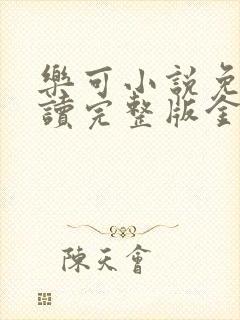 樂可小說免
讀完整版全
陳天會